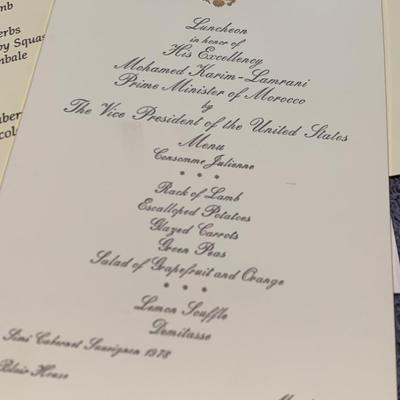 Luncheon
in honor of
His Excellency
Mohamed Karim-Lamrani
Prime Minister of Morocco
by
The Vice President of the United States
Menu
Consomme Julienne
* * *
Rack of Lamb
Escalloped Potatoes
Glazed Carrots
Green Peas
Salad of Grapefruit and Orange
* * *
Lemon Souffle
Demitasse
Simi Cabernet Sauvignon 1978
Blair House
mb
erbs
by Squas
mbale
mber
col